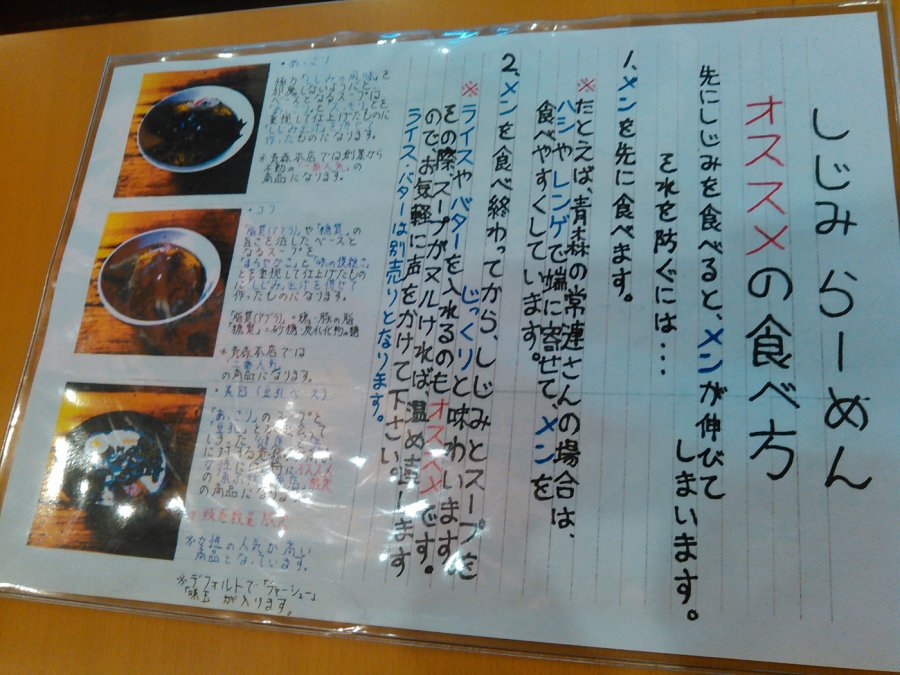 しじみらーめん
オススメの食べ方
先にしじみを食べると、メンが伸びて
しまいます。
それを防ぐには…
1、メンを先に食べます。
※たとえば、青森の常連さんの場合は、
ハシやレンゲで端に寄せて、メンを
食べやすくしています。
2、メンを食べ終わってから、しじみとスープを
じっくりと味わいます。
※ライスやバターを入れるのもオススメです。
その際、スープがヌルければ、温め直します
ので、お気軽に声をかけて下さい
ライス・バターは別売りとなります。
・あっこり
極力「しじみの風味」を
邪魔しないようにと
ベースとなるスープは
重視して仕上げたものに
作ったものになります。
※青森本店では創業から
不動の
の商品になります。
・コク
「脂質(アブラ)」や「糖質」の
旨さを活したベースと
なるスープを
とを重視して仕上げたもの
に「しじみ」出汁を併せて
作ったものになります。
「脂質(アブラ)」=鶏・豚の脂
「糖質」=砂糖・炭水化物の糖
※青森本店では
の商品になります。
(豆乳ベース)
「あっこり」のスープと
の商品になります。
※販売数量限定
※女性の人気が高い
商品となっています。
※デフォルトで「チャーシュー」
「味玉」が入ります。